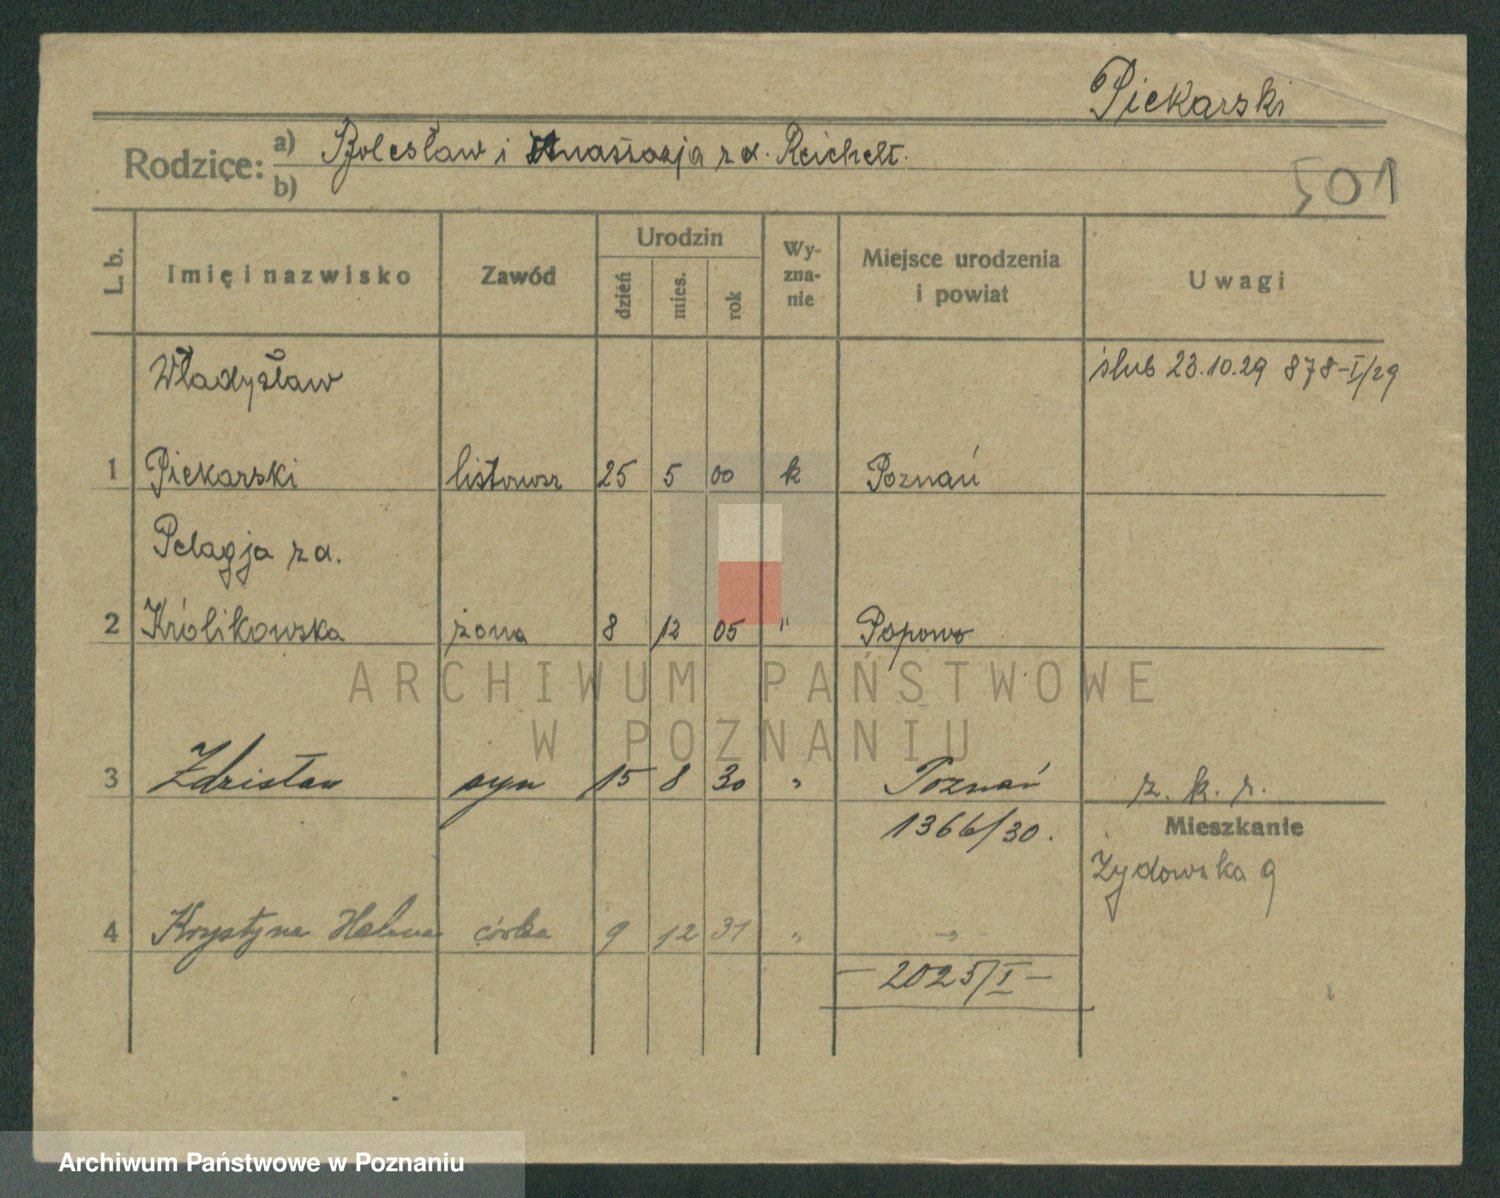 Piekarski
Rodzice: a) Bolesław i Anastazja z d. Reichelt.
b)
501
L. b. Imię i nazwisko Zawód Urodzin dzień mies. rok Wyznanie Miejsce urodzenia i powiat Uwagi
Władysław ślub 23.10.29 878-I/29
1 Piekarski listonosz 25 5 00 k Poznań
Pelagja z d.
2 Królikowska żona 8 12 05 " Popowo
ARCHIWUM PAŃSTWOWE
W POZNANIU
3 Zdzisław syn 15 8 30 " Poznań z. k. r.
1366/30. Mieszkanie
Żydowska 9
4 Krystyna Helena córka 9 12 31 " -"-
- 2025/I -
Archiwum Państwowe w Poznaniu